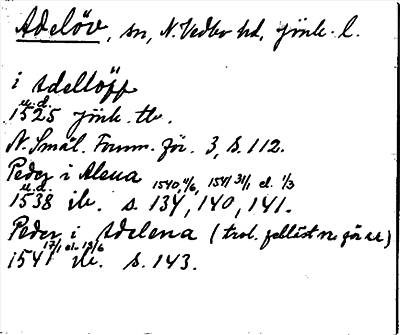 Adelöv, sn, N. Vedbo hd, Jönk. l.
i Adellöff
u.d.
1525 Jönk. tb.
N. Smål. Fornm. för. 3, s. 112.
Peder i Alena
u.d. 1540 4/6, 1541 31/1 el. 1/3
1538 ib. s. 134, 140, 141.
Peder i Adelena (trol. felläst n för u)
17/1 el. 13/6
1541 ib. s. 143.